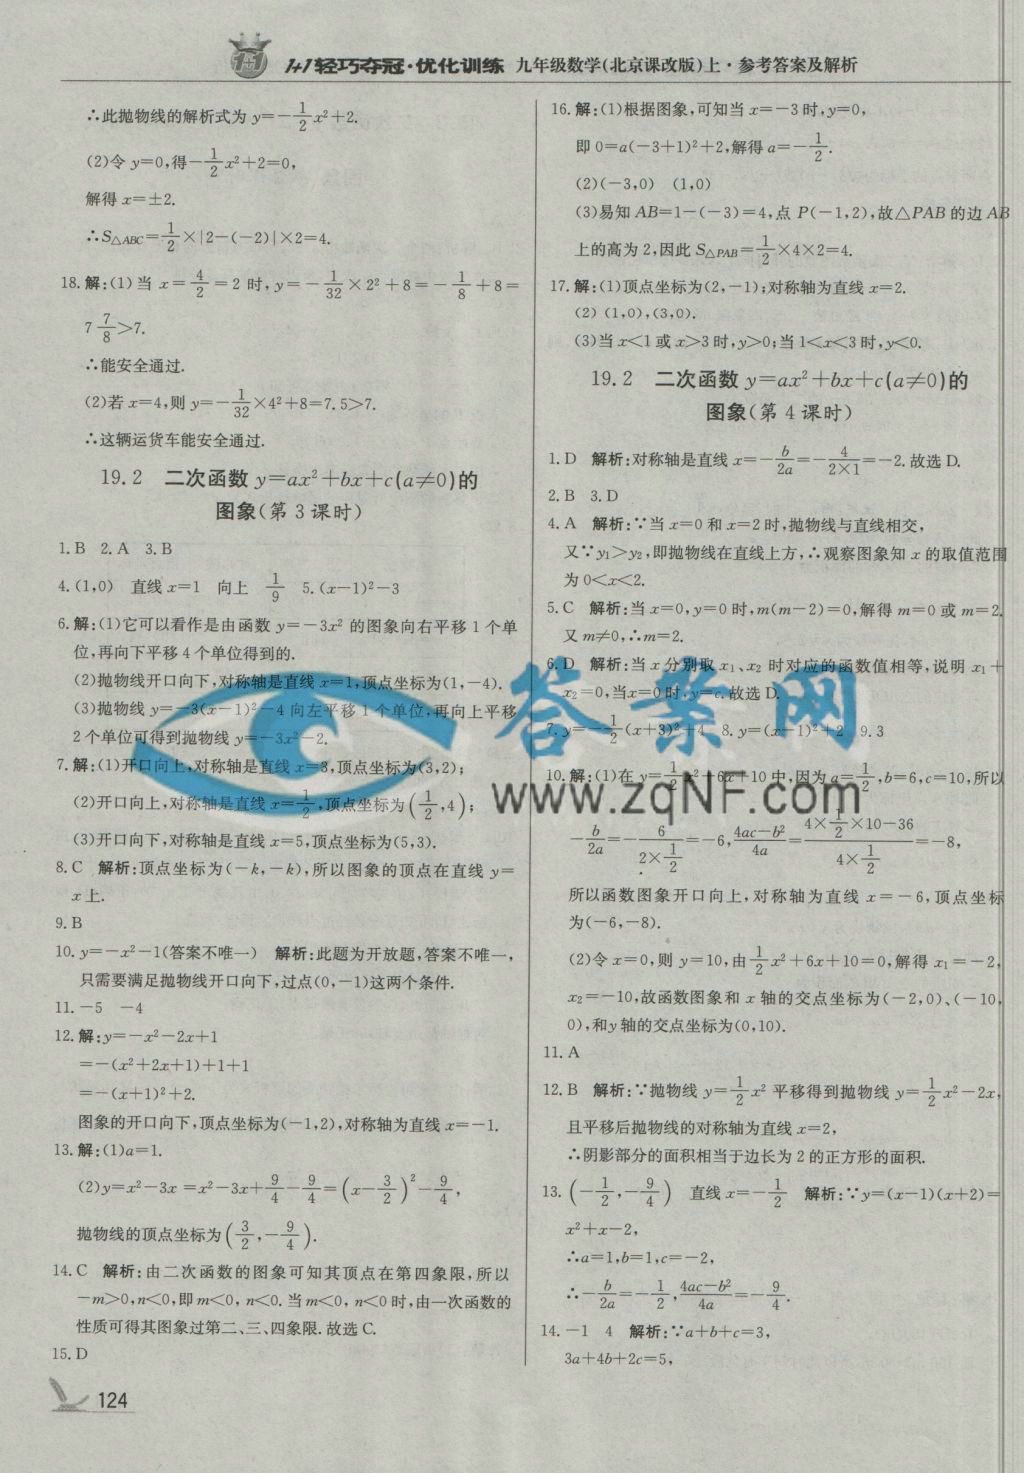 1+1轻巧夺冠·优化训练 九年级数学(北京课改版)上·参考答案及解析
∴此抛物线的解析式为 y=-1/2x²+2.
(2)令 y=0,得-1/2x²+2=0,
解得 x=±2.
∴S△ABC=1/2×|2-(-2)|×2=4.
18.解:(1)当 x=4/2=2 时,y=-1/32×2²+8=-1/8+8=
7 7/8>7.
∴能安全通过.
(2)若 x=4,则 y=-1/32×4²+8=7.5>7.
∴这辆运货车能安全通过.
19.2 二次函数 y=ax²+bx+c(a≠0)的
图象(第3课时)
1.B 2.A 3.B
4.(1,0) 直线 x=1 向上 1/9 5.(x-1)²-3
6.解:(1)它可以看作是由函数 y=-3x² 的图象向右平移1个单
位,再向下平移4个单位得到的.
(2)抛物线开口向下,对称轴是直线 x=1,顶点坐标为(1,-4).
(3)抛物线 y=-3(x-1)²-4 向左平移1个单位,再向上平移
2个单位可得到抛物线 y=-3x²-2.
7.解:(1)开口向上,对称轴是直线 x=3,顶点坐标为(3,2);
(2)开口向上,对称轴是直线 x=1/2,顶点坐标为(1/2,4);
(3)开口向下,对称轴是直线 x=5,顶点坐标为(5,3).
8.C 解析:顶点坐标为(-k,-k),所以图象的顶点在直线 y=
x上.
9.B
10.y=-x²-1(答案不唯一) 解析:此题为开放题,答案不唯一,
只需要满足抛物线开口向下,过点(0,-1)这两个条件.
11.-5 -4
12.解:y=-x²-2x+1
=-(x²+2x+1)+1+1
=-(x+1)²+2.
图象的开口向下,顶点坐标为(-1,2),对称轴为直线 x=-1.
13.解:(1)a=1.
(2)y=x²-3x=x²-3x+9/4-9/4=(x-3/2)²-9/4,
抛物线的顶点坐标为(3/2,-9/4).
14.C 解析:由二次函数的图象可知其顶点在第四象限,所以
-m>0,n<0,即 m<0,n<0.当 m<0,n<0时,由一次函数的
性质可得其图象过第二、三、四象限.故选C.
15.D
124
16.解:(1)根据图象,可知当 x=-3时,y=0,
即 0=a(-3+1)²+2,解得 a=-1/2.
(2)(-3,0) (1,0)
(3)易知 AB=1-(-3)=4,点 P(-1,2),故△PAB 的边 AB
上的高为2,因此 S△PAB=1/2×4×2=4.
17.解:(1)顶点坐标为(2,-1);对称轴为直线 x=2.
(2) (1,0),(3,0).
(3)当 x<1或 x>3时,y>0;当 1<x<3时,y<0.
19.2 二次函数 y=ax²+bx+c(a≠0)的
图象(第4课时)
1.D 解析:对称轴是直线 x=-b/2a=-4/2×1=-2.故选D.
2.B 3.D
4.A 解析:∵当 x=0和 x=2时,抛物线与直线相交,
又∵y₁>y₂,即抛物线在直线上方,∴观察图象知 x 的取值范围
为0<x<2.
5.C 解析:当 x=0,y=0时,m(m-2)=0,解得 m=0或 m=2.
又 m≠0,∴m=2.
6.D 解析:当 x 分别取 x₁、x₂ 时对应的函数值相等,说明 x₁+
x₂=0,当x=0时,y=c.故选D.
7.y=-1/2(x+3)²+4 8.y=(x-1)²+2 9.3
10.解:(1)在 y=1/2x²+6x+10中,因为 a=1/2,b=6,c=10,所以
-b/2a=-6/(2×1/2)=-6,(4ac-b²)/4a=(4×1/2×10-36)/(4×1/2)=-8,
所以函数图象开口向上,对称轴为直线 x=-6,顶点坐标
为(-6,-8).
(2)令 x=0,则 y=10,由1/2x²+6x+10=0,解得 x₁=-2,
x₂=-10,故函数图象和 x 轴的交点坐标为(-2,0)、(-10,
0),和y轴的交点坐标为(0,10).
11.A
12.B 解析:∵抛物线 y=1/2x² 平移得到抛物线 y=1/2x²-2x,
且平移后抛物线的对称轴为直线 x=2,
∴阴影部分的面积相当于边长为2的正方形的面积.
13.(-1/2,-9/4) 直线 x=-1/2 解析:∵y=(x-1)(x+2)=
x²+x-2,
∴a=1,b=1,c=-2,
∴-b/2a=-1/2,(4ac-b²)/4a=-9/4.
14.-1 4 解析:∵a+b+c=3,
3a+4b+2c=5,
答案网
www.zqNF.com